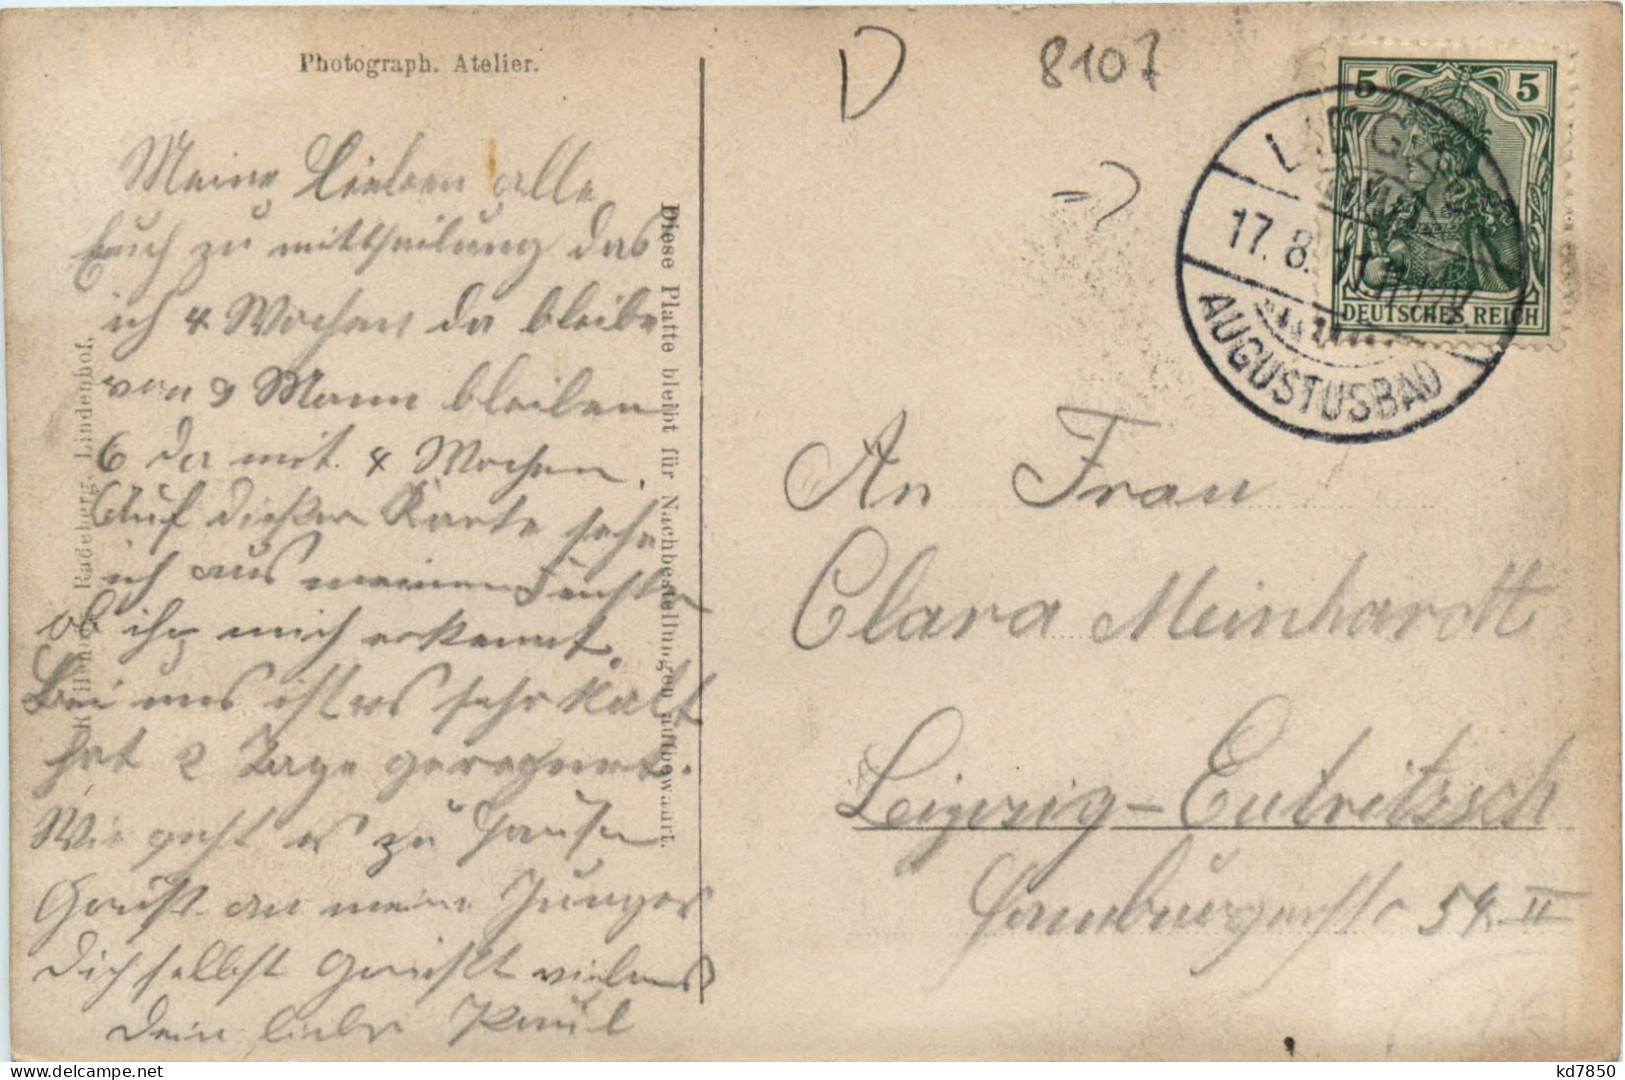 Photograph. Atelier.
Meine Lieben alle
Euch zu mittheilung das
ich 4 Wochen da bleibe
von 9 Mann bleiben
6 da mit 4 Wochen.
Auf dießer Karte sehe
ich aus meinen Fenster
ob ihr mich erkennt.
Bei uns ist es sehr kalt
hat 2 Tage geregnet.
Wie geht es zu Hause
Gruß an meine Junges
Dich selbst Grüßt vielmals
Dein lieber Paul
Radeberg, Lindenhof,
Diese Platte bleibt für Nachbestellungen aufbewaart.
D
8107
5 5
DEUTSCHES REICH
17. 8. 11
AUGUSTUSBAD
An Frau
Clara Meinhardt
Leipzig-Eutritzsch
Hamburgerstr 54. II
kd7850